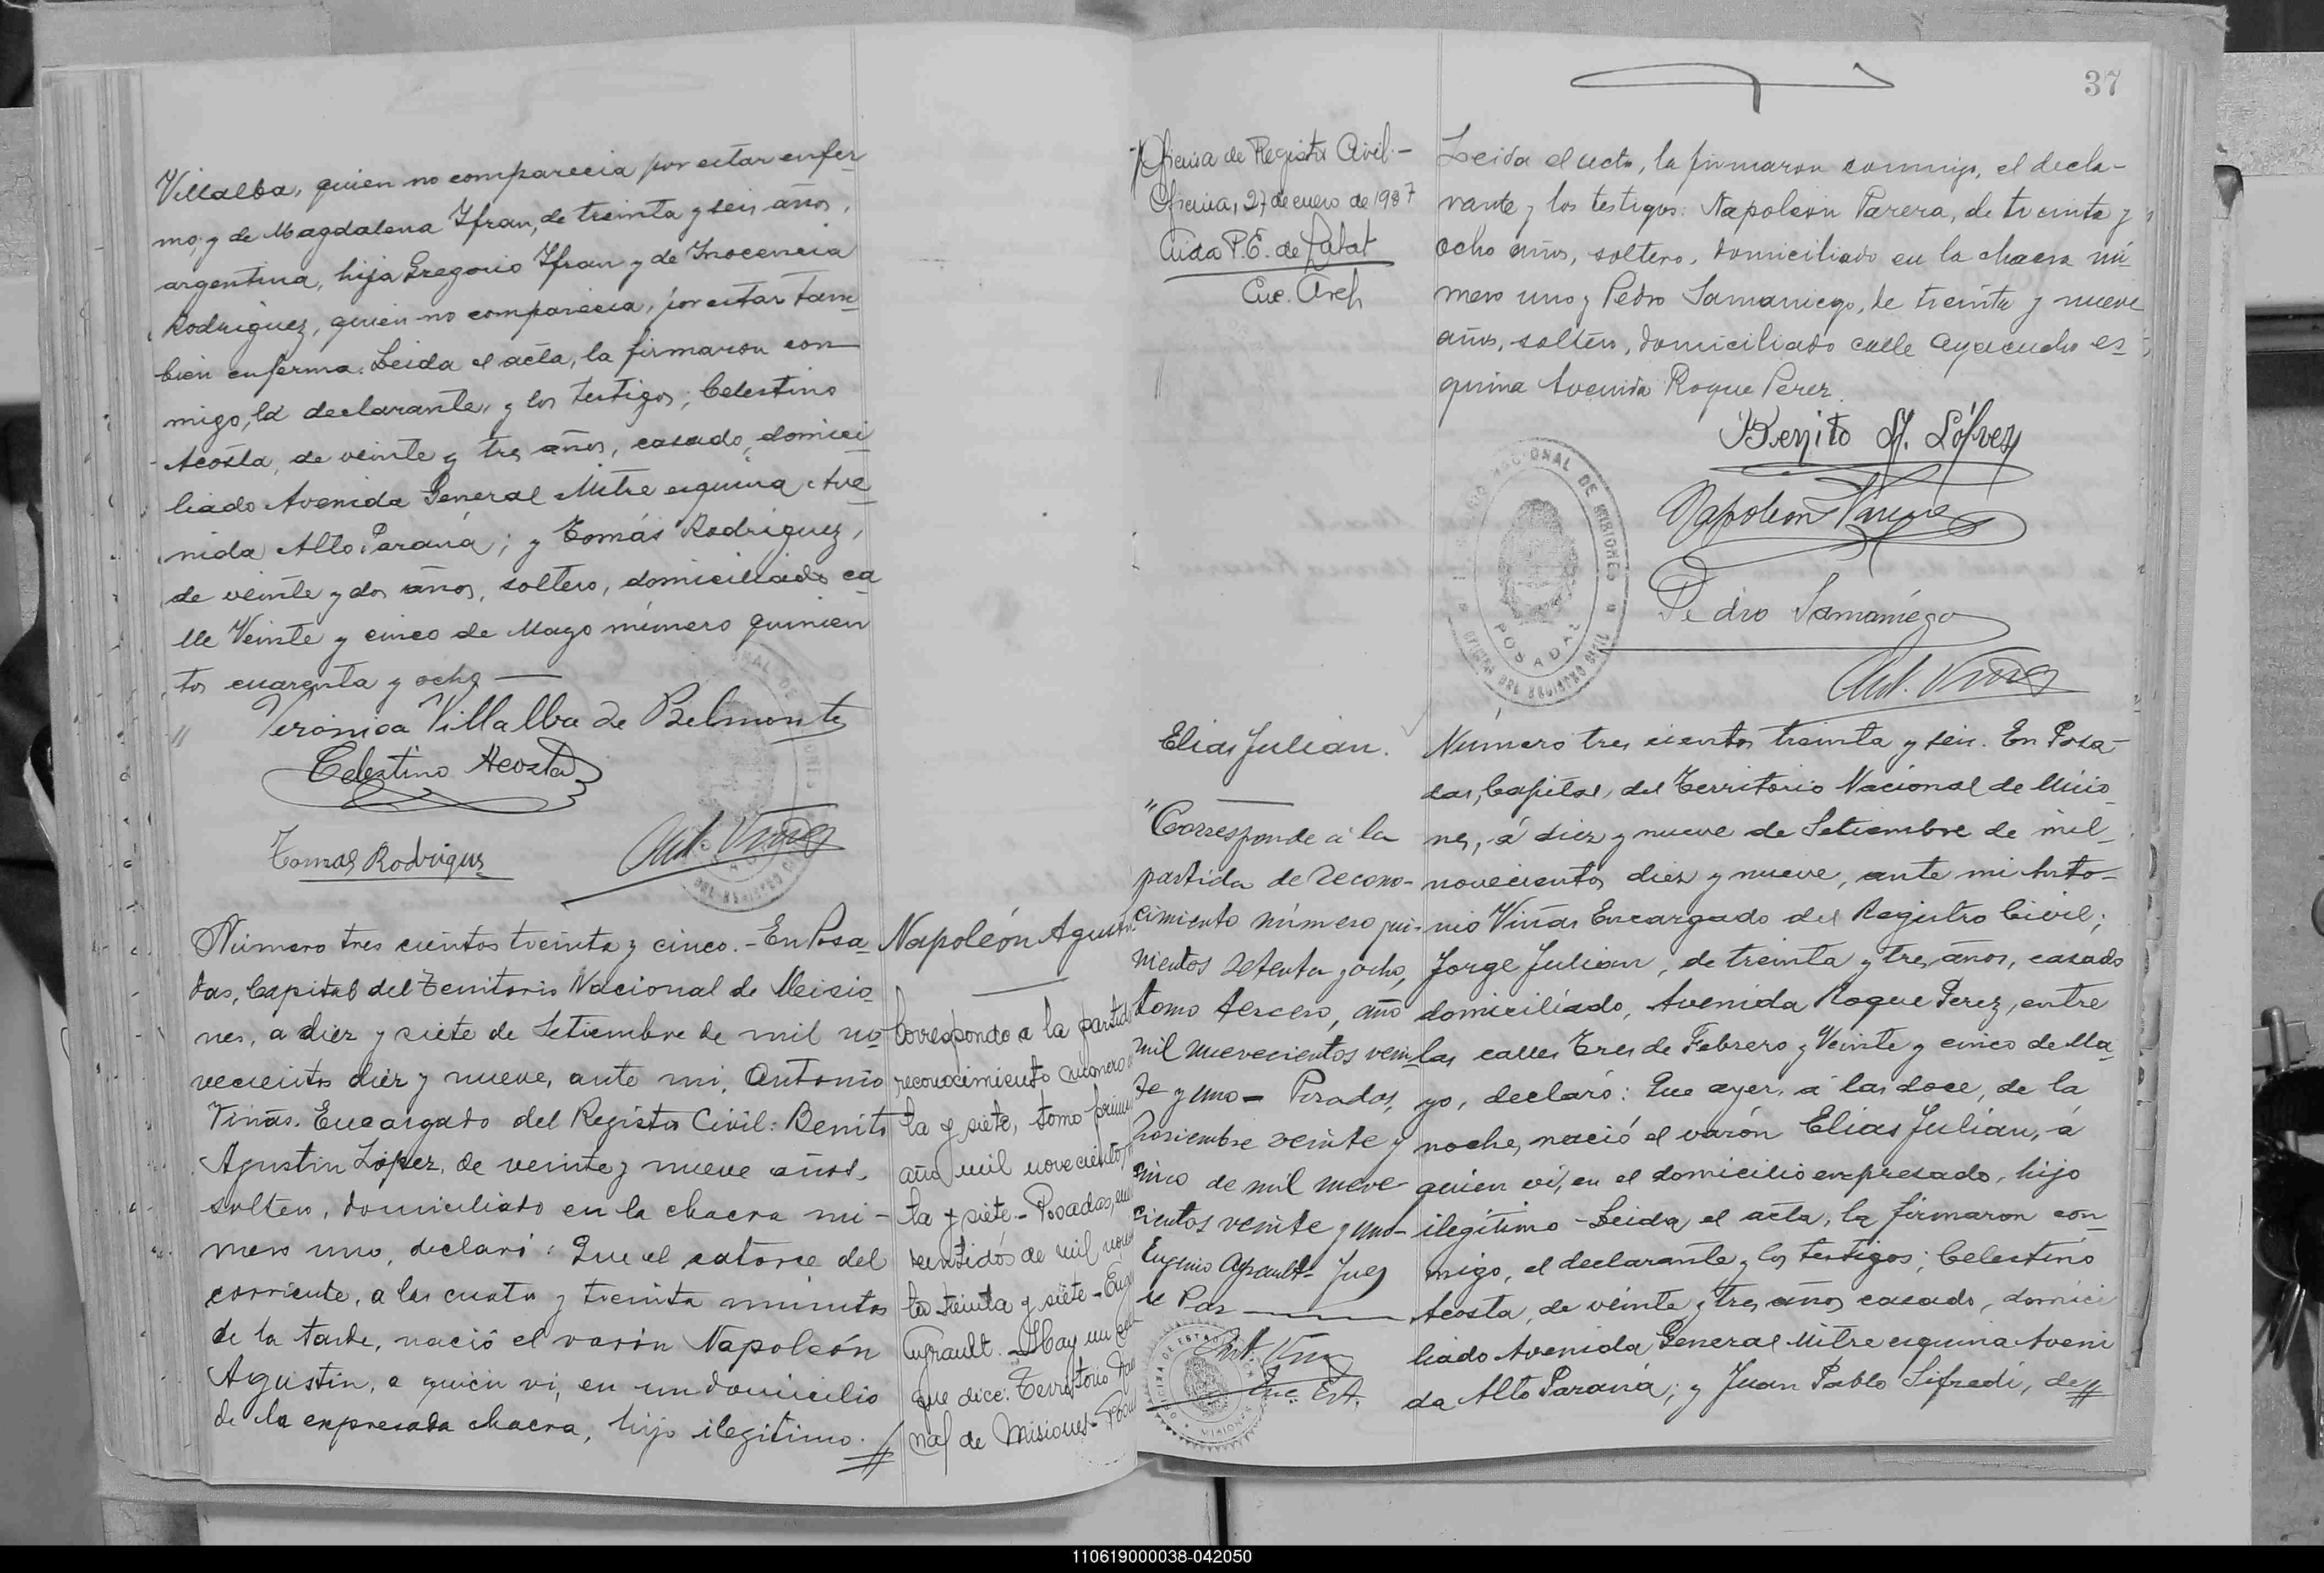 Villalba, quien no comparecia por estar enfer
mo; y de Magdalena Ifran, de treinta y seis años,
argentina, hija Gregorio Ifran y de Inocencia
Rodriguez, quien no comparecia, por estar tam
bien enferma. Leida el acta, la firmaron con
migo, la declarante, y los testigos; Celestino
Acosta, de veinte y tres años, casado, domici
liado Avenida General Mitre esquina Ave
nida Alto Paraná; y Tomás Rodriguez,
de veinte y dos años, soltero, domiciliado ca
lle Veinte y cinco de Mayo número quinien
tos cuarenta y ocho
Veronica Villalba de Belmonte
Celestino Acosta
Tomas Rodriguez
Ant. Viñas
Número tres cientos treinta y cinco. - En Posa
das, Capital del Territorio Nacional de Misio
nes, a diez y siete de Setiembre de mil no
vecientos diez y nueve, ante mi, Antonio
Viñas. Encargado del Registro Civil: Benito
Agustin López, de veinte y nueve años,
soltero, domiciliado en la chacra nú-
mero uno, declaró: Que el catorce del
corriente, a las cuatro y treinta minutos
de la tarde, nació el varón Napoleón
Agustin, a quien vi, en un domicilio
de la expresada chacra, hijo ilegitimo.
Napoleón Agustin
Corresponde a la partida
reconocimiento numero
ta y siete, tomo primero
año mil novecientos
ta y siete - Posadas,
veintidós de mil
tos treinta y siete -
Ayrault. Hay un
que dice: Territorio
nal de Misiones -
37
Oficina de Registro Civil -
Oficina, 27 de enero de 1987
Aida P. E. de Rabat
Enc. Arch
Leida el acta, la firmaron conmigo, el decla-
rante y los testigos: Napoleón Parera, de treinta y
ocho años, soltero, domiciliado en la chacra nú
mero uno y Pedro Samaniego, de treinta y nueve
años, soltero, domiciliado calle Ayacucho es
quina Avenida Roque Perez.
Benito A. López
Napoleon Parera
Pedro Samaniego
Ant. Viñas
NACIONAL DE MISIONES
POSADAS
OFICINA DEL REGISTRO CIVIL
Elias Julián.
"Corresponde á la
partida de recono-
cimiento número qui-
nientos setenta y ocho,
tomo tercero, año
mil nuevecientos vein-
te y uno - Posadas,
Noviembre veinte y
cinco de mil nueve
cientos veinte y uno -
Eugenio Ayrault - Juez
de Paz
Ant. Viñas
Enc. Est.
Número tres cientos treinta y seis. En Posa-
das, Capital, del Territorio Nacional de Misio
nes, á diez y nueve de Setiembre de mil
novecientos diez y nueve, ante mi Anto-
nio Viñas Encargado del Registro Civil;
Jorge Julián, de treinta y tres años, casado
domiciliado, Avenida Roque Perez, entre
las calles Tres de Febrero y Veinte y cinco de Ma
yo, declaró: Que ayer, a las doce, de la
noche, nació el varón Elias Julián, á
quien vi, en el domicilio expresado, hijo
ilegítimo - Leida el acta, la firmaron con
migo, el declarante y los testigos; Celestino
Acosta, de veinte y tres años casado, domici
liado Avenida General Mitre esquina Aveni
da Alto Paraná; y Juan Pablo Sifredi, de
110619000038-042050